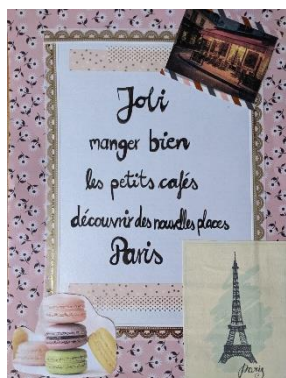 Joli
manger bien
les petits cafés
découvrir des nouvelles places
Paris